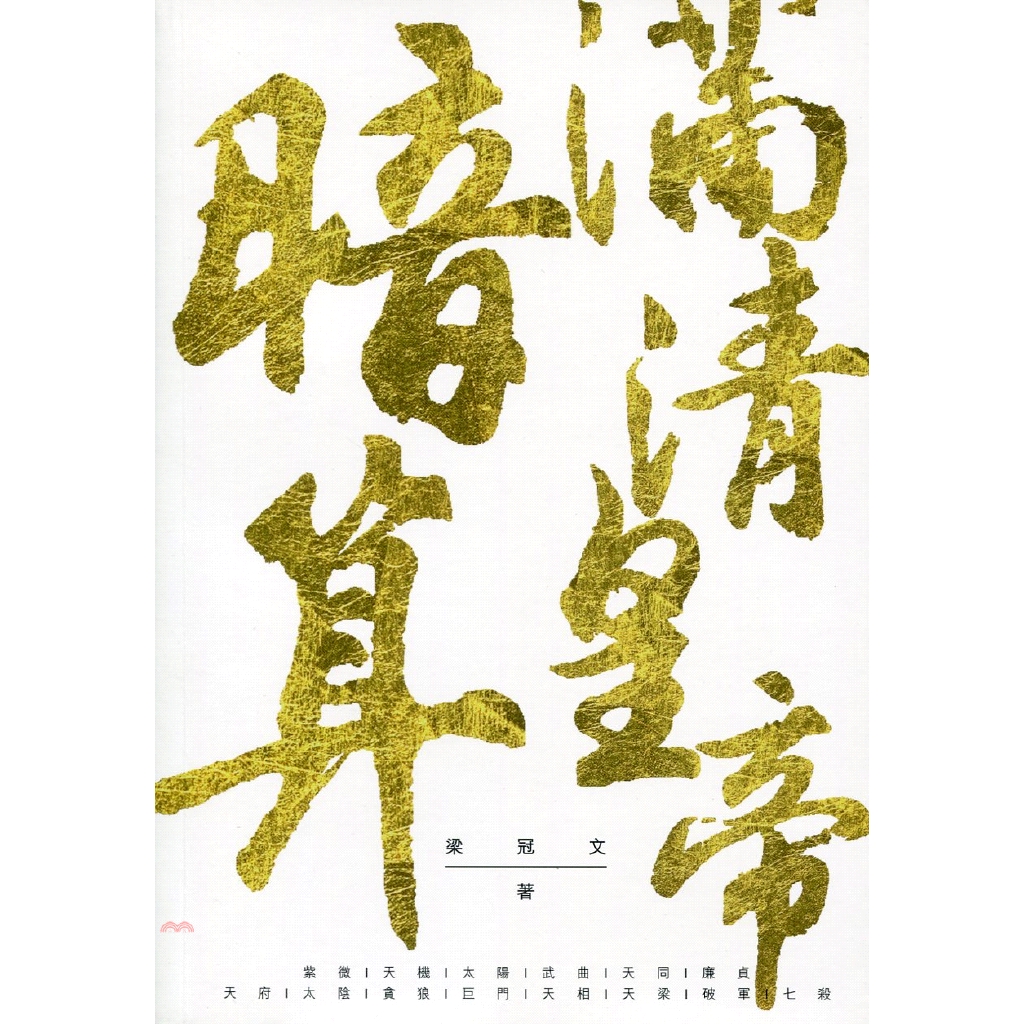 滿清皇帝
暗算
梁冠文
著
紫微|天機|太陽|武曲|天同|廉貞
天府|太陰|貪狼|巨門|天相|天梁|破軍|七殺